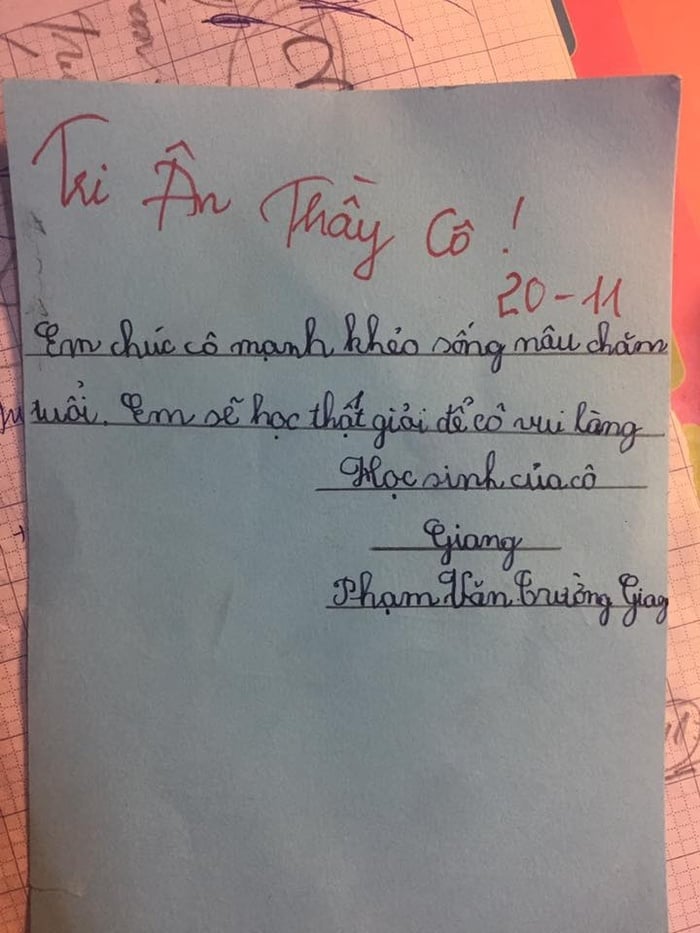 Tri Ân Thầy Cô !
20-11
Em chúc cô mạnh khẻo sống nâu chăm
tuổi. Em sẽ học thật giải để cô vui làng
Học sinh của cô
Giang
Phạm Văn Trường Giag